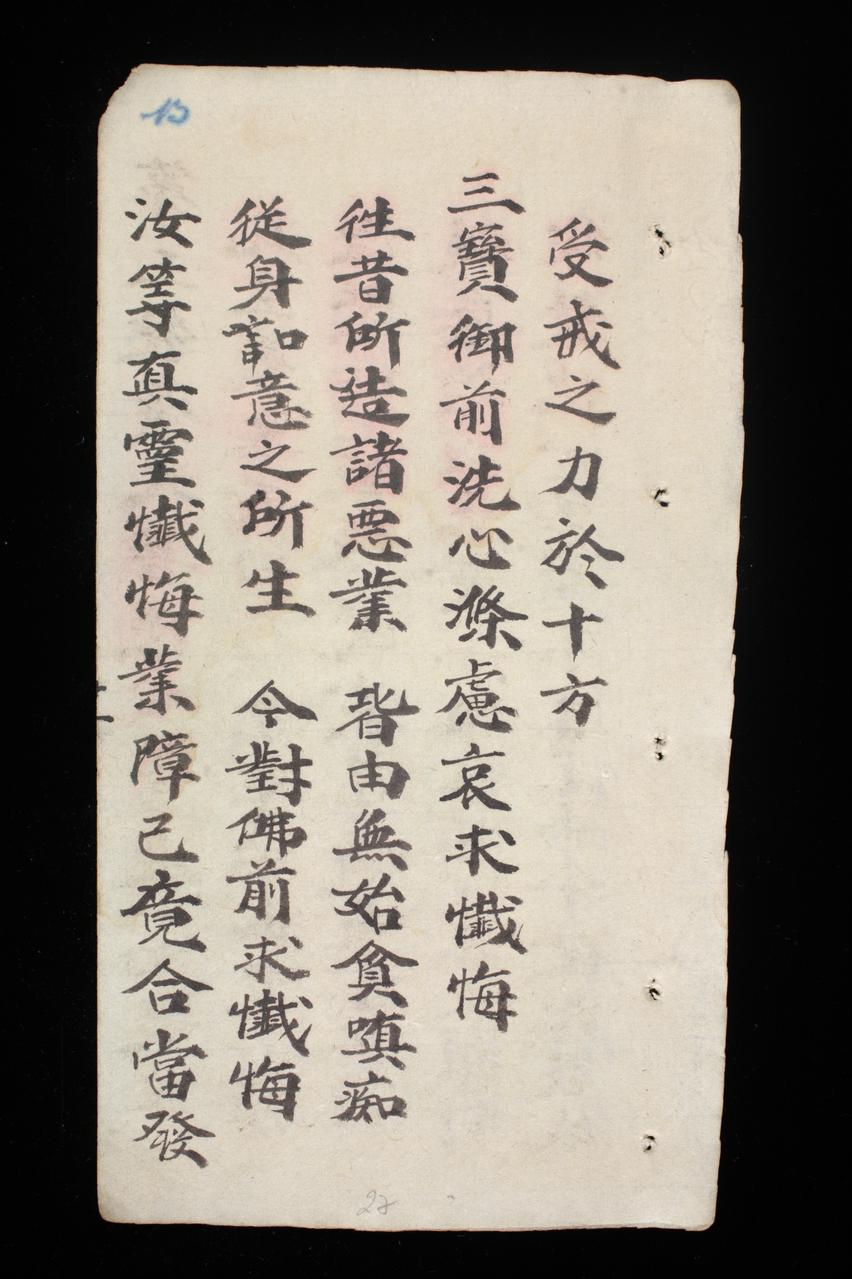 受戒之力於十方
三寳御前洗心滌慮哀求懺悔
徃昔所造諸惡業 皆由無始貪嗔痴
從身語意之所生 今對佛前求懺悔
汝等真靈懺悔業障已竟合當發
13
27